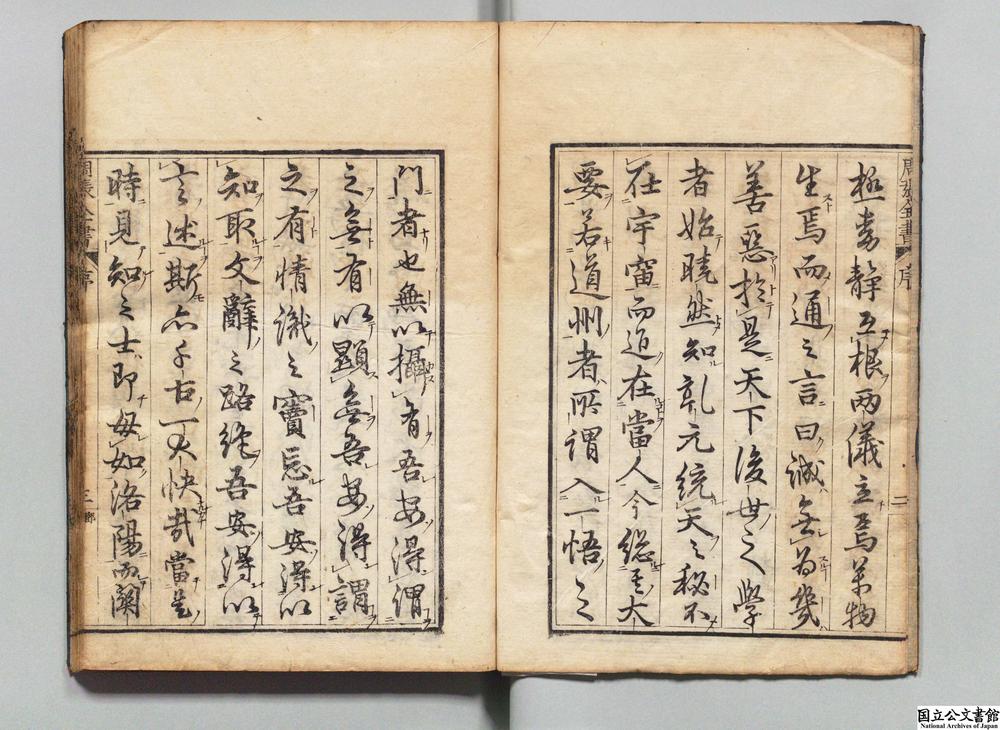 周張全書
序
二
極動靜互根兩儀立焉萬物
生焉而通之言曰誠無為幾
善惡於是天下後世之學
者始曉然知乾元統天之秘不
在宇宙而近在當人今總其大
要若道州者所謂入一悟之
門者也無以攝有吾安得謂
之無有以顯無吾安得謂
之有情識之竇忘吾安得以
知取文辭之路絕吾安得以
言述斯亦千古一大快哉當是
時見知之士即毋如洛陽而關
周張全書
序
三
国立公文書館
National Archives of Japan